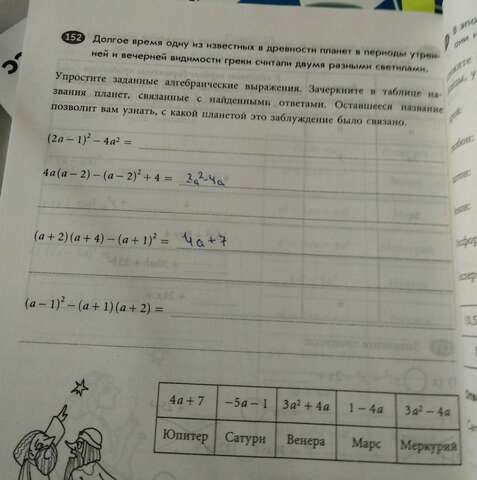 152 Долгое время одну из известных в древности планет в периоды утрен-
ней и вечерней видимости греки считали двумя разными светилами.
Упростите заданные алгебраические выражения. Зачеркните в таблице на-
звания планет, связанные с найденными ответами. Оставшееся название
позволит вам узнать, с какой планетой это заблуждение было связано.
(2a − 1)² − 4a² =
4a(a − 2) − (a − 2)² + 4 = 2a²-4a
(a + 2)(a + 4) − (a + 1)² = 4a+7
(a − 1)² − (a + 1)(a + 2) =
4a + 7 −5a − 1 3a² + 4a 1 − 4a 3a² − 4a
Юпитер Сатурн Венера Марс Меркурий